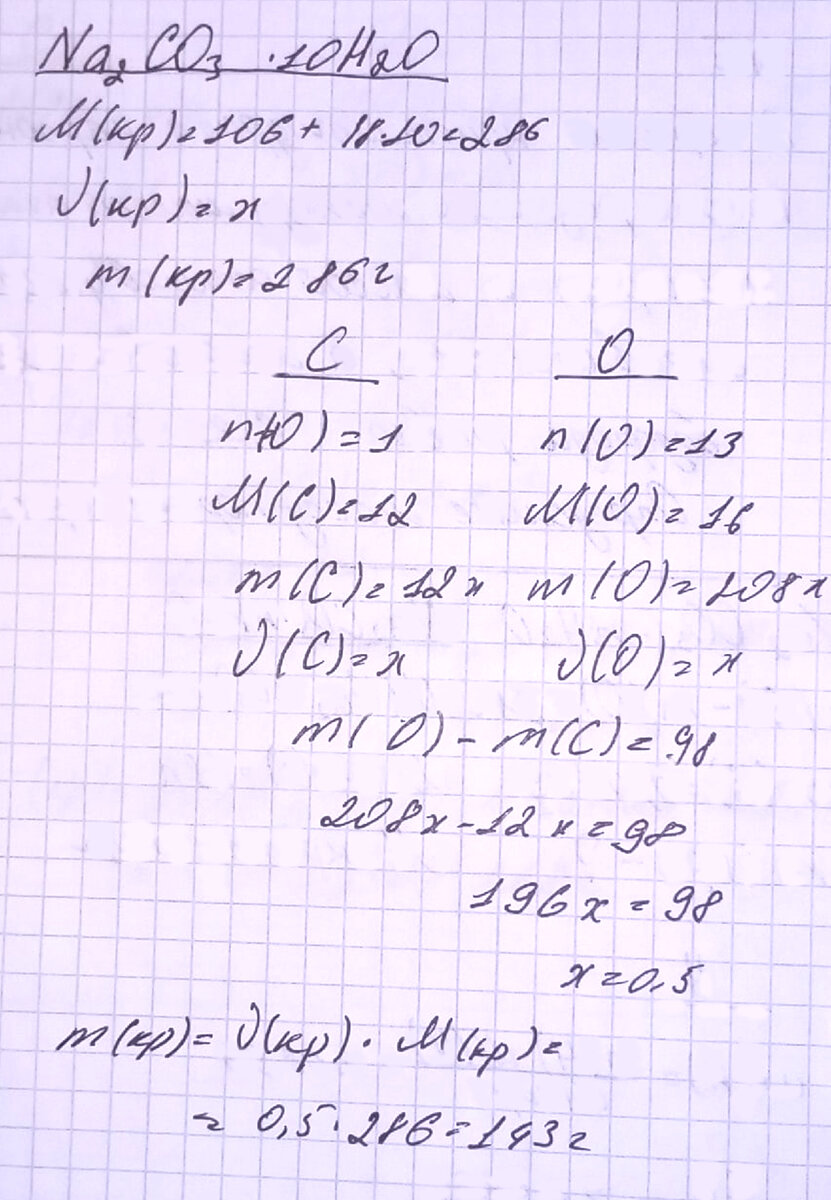 Na₂CO₃ ·10H₂O
M(кр)=106+ 18·10=286
ν(кр)=x
m(кр)=286г
C O
n(O)=1 n(O)=13
M(C)=12 M(O)=16
m(C)=12x m(O)=208x
ν(C)=x ν(O)=x
m(O)-m(C)=98
208x-12x=98
196x=98
x=0,5
m(кр)=ν(кр)·M(кр)=
=0,5·286=143г